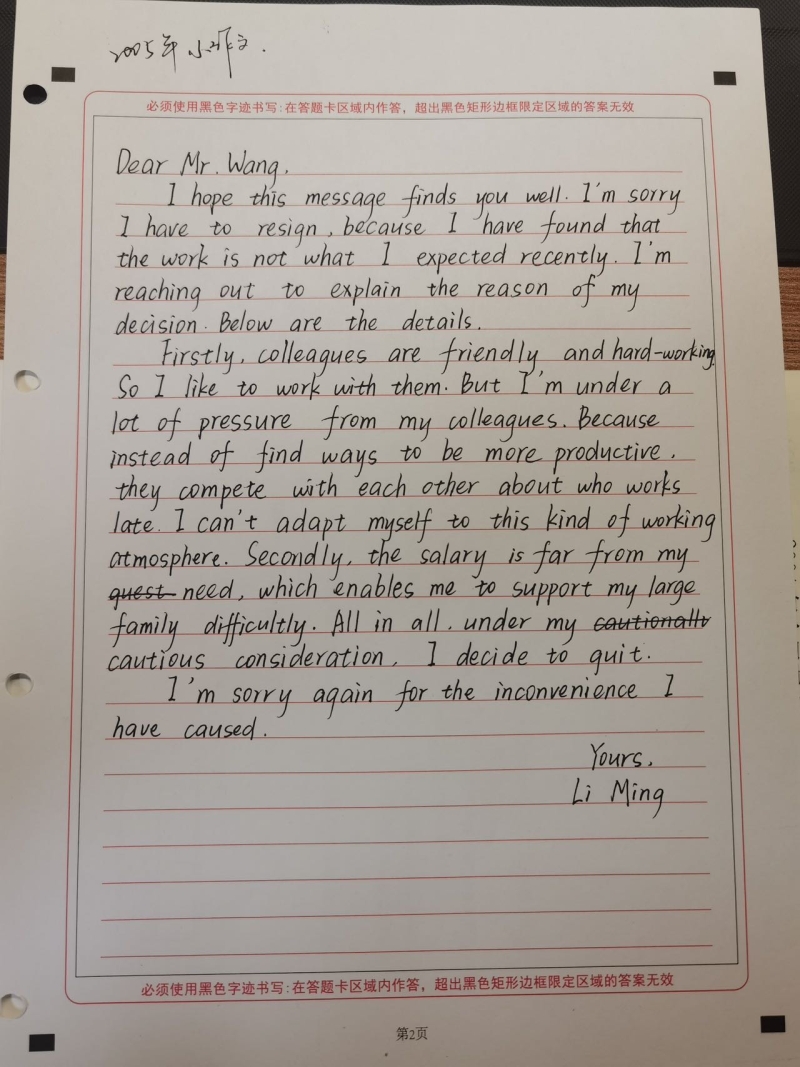 2005年 小作文.
必须使用黑色字迹书写:在答题卡区域内作答，超出黑色矩形边框限定区域的答案无效
Dear Mr. Wang,
I hope this message finds you well. I'm sorry
I have to resign, because I have found that
the work is not what I expected recently. I'm
reaching out to explain the reason of my
decision. Below are the details.
Firstly, colleagues are friendly and hard-working.
So I like to work with them. But I'm under a
lot of pressure from my colleagues. Because
instead of find ways to be more productive,
they compete with each other about who works
late. I can't adapt myself to this kind of working
atmosphere. Secondly, the salary is far from my
quest need, which enables me to support my large
family difficultly. All in all, under my cautionally
cautious consideration, I decide to quit.
I'm sorry again for the inconvenience I
have caused.
Yours,
Li Ming
必须使用黑色字迹书写:在答题卡区域内作答，超出黑色矩形边框限定区域的答案无效
第2页